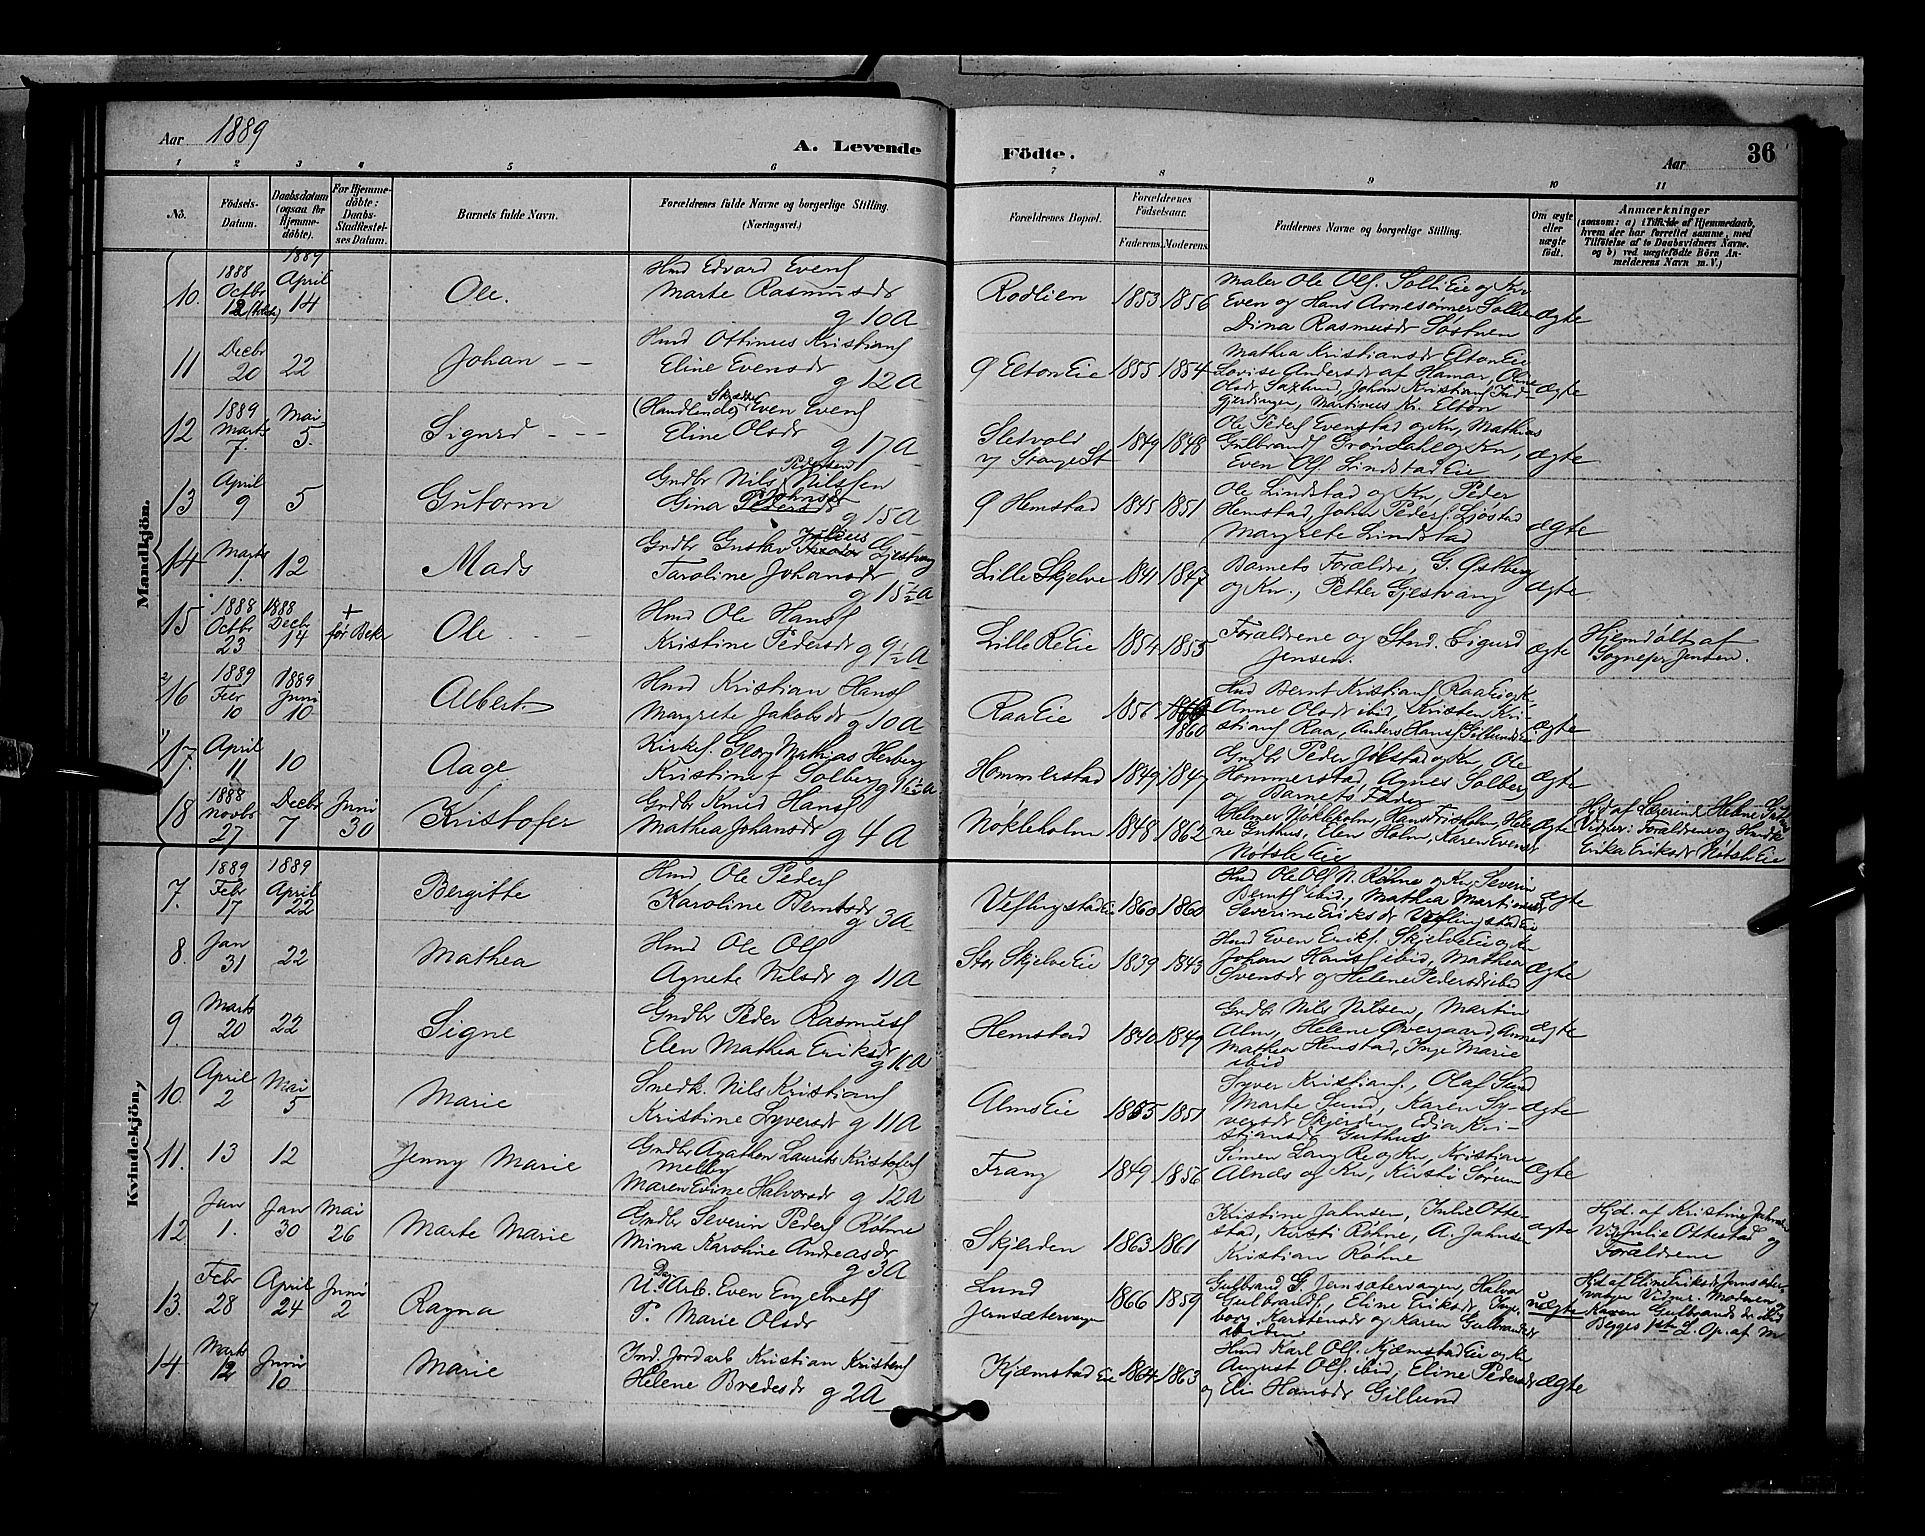 Aar 1889
A. Levende Födte.
Aar 36
1 2 3 4 5 6 7 8 9 10 11
No.
Födsels-Datum.
Daabsdatum (ogsaa for Hjemme-döbte).
For Hjemme-döbte: Daabs-Stadfæstel-ses Datum.
Barnets fulde Navn.
Forældrenes fulde Navne og borgerlige Stilling. (Næringsvei.)
Forældrenes Bopæl.
Forældrenes Födselsaar.
Faderens. Moderens.
Faddernes Navne og borgerlige Stilling.
Om ægte eller uægte födt.
Anmærkninger
(saasom: a) i Tilfælde af Hjemmedaab, hvem der har forrettet samme, med Tilföielse af to Daabsvidners Navne. og b) ved uægtefödte Börn An-melderens Navn m. V.)
Mandkjön.
10. 1888 Octbr 12 1889 April 14 Ole. Hmd Edvard Evens
Marte Rasmusdr g 10 A Rodlien 1853 1856 Maler Ole Ols. Solli Eie og Kv
Even og Hans Arnesønner Sollie
Dina Rasmusdr ægte
11 Decbr 20 22 Johan Hmd Ottinus Kristians
Eline Evensdr g 12 A Elton Eie 1855 1854 Mathea Kristiansdr Elton Eie
Lovise Andersdr af Hamar, Oline
Olsdr Saxlund, Johan Kristians
Gjerdingen, Martinus Kr. Elton ægte
12 1889 Marts 7. Mai 5. Sigurd (Handlende) Skrædder Even Evens
Eline Olsdr g 17 A Sletvold
v Stange St 1849 1848 Ole Peders Evenstad og Kv, Mathias
Gulbrands Grøndahl og Kv,
Even Ols Lindstad Eie ægte
13 April 9 5 Gutorm Gndbr Nils Pedersen Nilssen
Gina Johnsdr g 15 A Hemstad 1845 1851 Ole Lindstad og Kv, Peder
Hemstad, John Peders. Ljøstad
Margrete Lindstad ægte
14 Marts 1. 12 Mads Gndbr Gustav Julius Gjestvang
Taroline Johansdr g 15½ A Lille Skjelve 1841 1847 Barnets Forældre, G. Østberg
og Kv., Petter Gjestvang ægte
15 1888 Octbr 23 1888 Decbr 14 + før Bekr Ole Hmd Ole Hans
Kristine Pedersdr g 9½ A Lille Re Eie 1854 1855 Forældrene og Stud. Sigurd
Jensen. ægte Hjemdøbt af
Sognepr Jensen.
16 1889 Febr 10 1889 Juni 10 Albert Hmd Kristian Hans
Margrete Jakobsdr g 10 A Raa Eie 1856 1860 Hmd Bernt Kristians, Raa Eie og K,
Anne Olsdr ibid, Kristen Kri-
stians Raa, Anders Hans Gillund Eie ægte
17. April 11 10 Aage Kirkes. Georg Mathias Herberg
Kristine f Solberg g 16½ A Hommerstad 1849 1847 Gndbr Peder Jølstad og Kv, Ole
Hommerstad, Agnes Solberg
og Barnets Fader ægte
18 1888 Novbr 27 Decbr 7 Juni 30 Kristofer Gndbr Knud Hans
Mathea Johansdr g 4 A Nøkleholm 1848 1862 Helmer Nøkleholm, Hans Fosholm, Hele-
ne Guthus, Elen Holm, Karen Evensdr
Nøtsle Eie ægte Hjd af Lærerinde Helene
Vidner: Forældrene og
Erika Eriksdr Nøtsle Eie
Kvindekjön.
7. 1889 Febr 17 1889 April 22 Bergitte Hmd Ole Peders
Karoline Berntsdr g 3 A Veflingstad Eie 1860 1860 Hmd Ole Ols N. Røhne og Kv, Severin
Bernts ibid, Mathea Martinsdr
Severine Eriksdr Veflingstad Eie ægte
8. Jan 31 22 Mathea Hmd Ole Ols
Agnete Nilsdr g 11 A Stor Skjelve Eie 1839 1843 Hmd Even Eriks. Skjelve Eie og K,
Johan Hans ibid, Mathea
Svensdr og Helene Pedersdr ibid ægte
9. Marts 20 22 Signe Gndbr Peder Rasmus
Elen Mathea Eriksdr g 16 A Hemstad 1840 1849 Gndb Nils Nilsen, Martin
Alm, Helene Øvergaard,
Mathea Hemstad, Inge Marie
ibid ægte
10. April 2 Mai 5 Marie Snedk. Nils Kristians
Kristine Syversdr g 11 A Alms Eie 1855 1851 Syver Kristians., Olaf Sund
Marte Sund, Karen Sy-
versdr Skjerden, Edia Kri-
stiansdr Guthus ægte
11. 13 12 Jenny Marie Gndbr Agathon Laurits Kristofers
Melby
Maren Evine Halvorsdr g 12 A Frang 1849 1856 Simen Lang Re og Kv, Kristian
Alnæs og Kv, Kirsti Sørum ægte
12. Jan 1. Jan 30 Mai 26 Marte Marie Gndbr Severin Peders Røhne
Mina Karoline Andreasdr g 3 A Skjerden 1863 1861 Kristine Jahnsen, Julie Otte-
stad, Kersti Røhne, A. Jahnsen
Kristian Røhne ægte Hjd. af Kristine Jahnsen
Vid Julie Ottestad og
Forældrene
13. Febr 28 April 24 Juni 2 Ragna U. Dag Arb. Even Engebrets
P. Marie Olsdr Lund
Jernsætervangen 1866 1859 Gulbrand G. Jernsætervangen, Halvo
Gulbrands, Eline Eriksdr, Inge-
borg Karstensdr og Karen Gulbrandsdr
ibidem uægte Hjd. af Eline Eriksdr Jernsæter-
vangen Vidner. Moderen og
Karen Gulbrandsdr ibid
Begges 1ste L. Op. af M
14 Marts 12 Juni 10 Marie Ind. Jordarb Kristian Kristens
Helene Bredesdr g 2 A Kjæmstad Eie 1864 1863 Hmd Karl Ols. Kjæmstad Eie og Kv
August Ols. ibid, Eline Pedersdr
og Elis Hansdr Gillund ægte